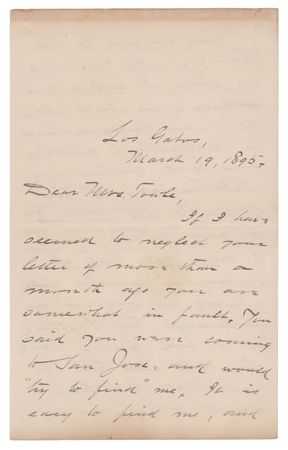 Los Gatos,
March 19, 1895.
Dear Mrs. Towle,
If I have
seemed to neglect your
letter of more than a
month ago you are
somewhat in fault. You
said you were coming
to San Jose, and would
"try to find" me. It is
easy to find me, and